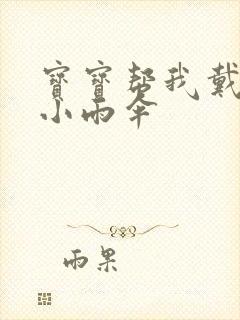 寶寶幫我戴
小雨伞
雨果